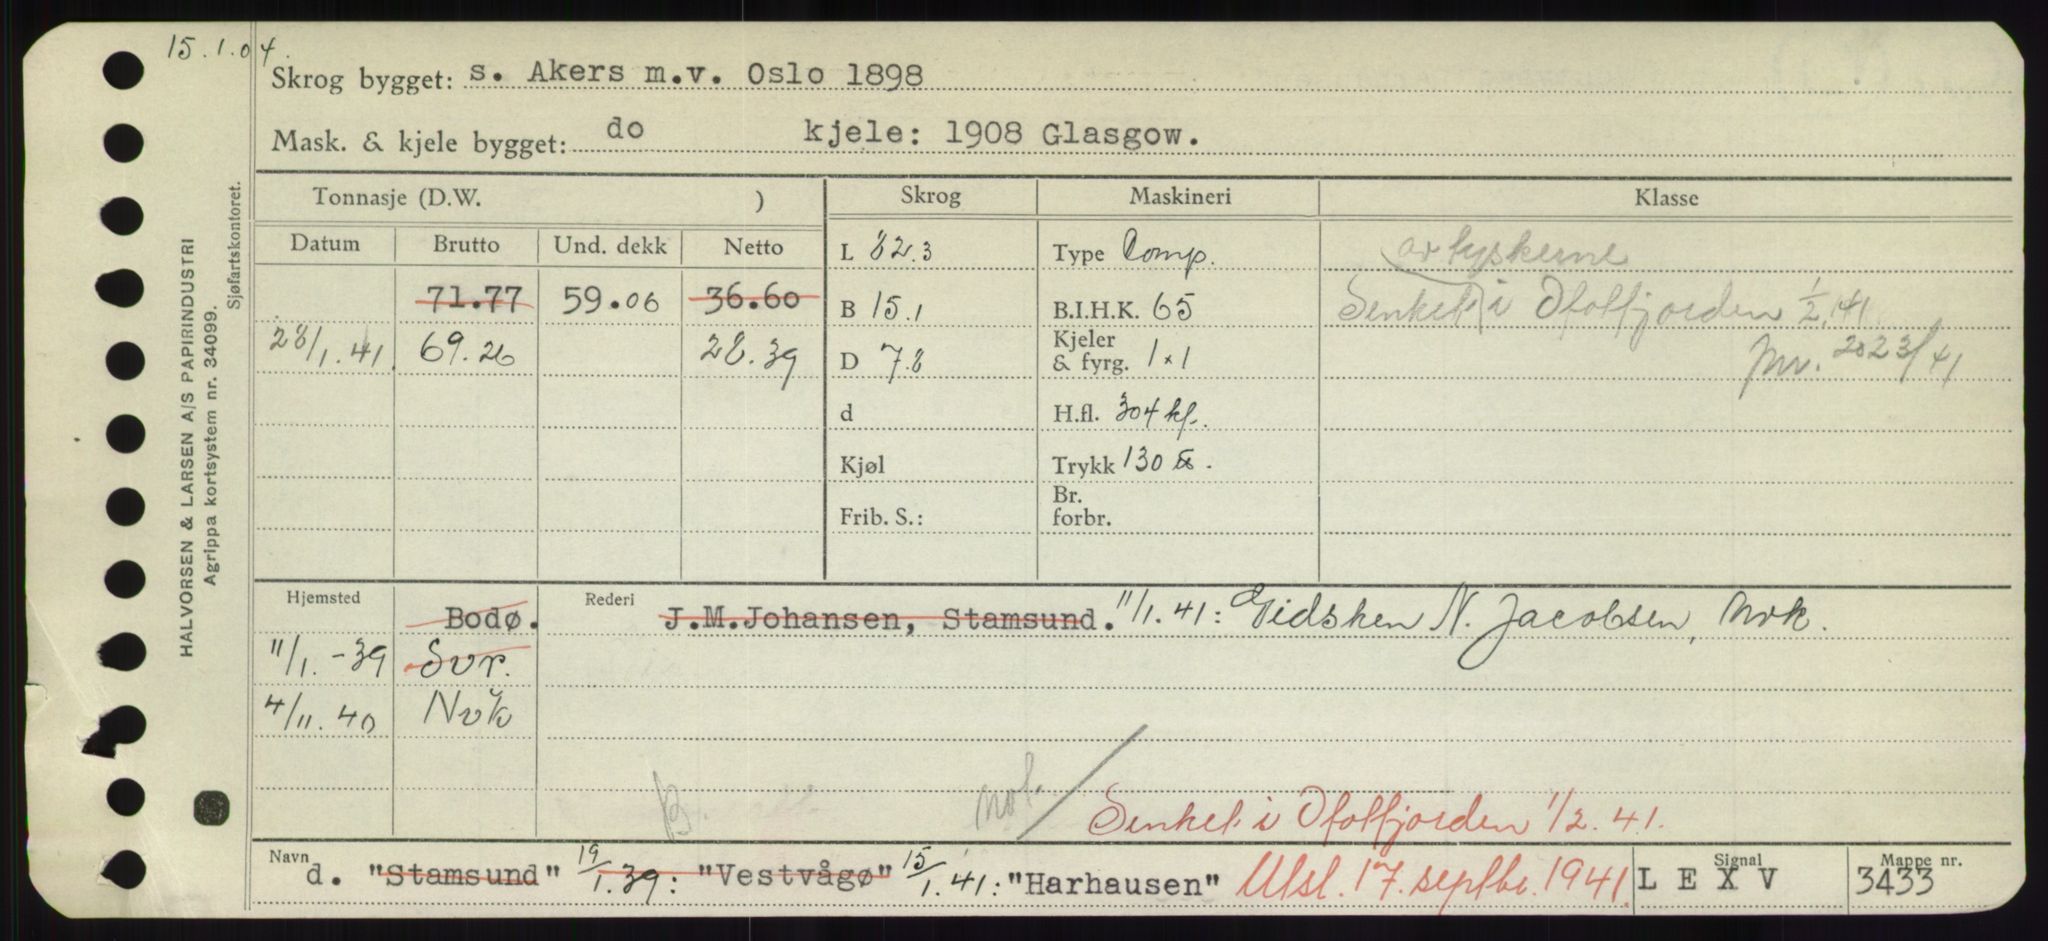 15.1.04.
Skrog bygget: s. Akers m.v. Oslo 1898
Mask. & kjele bygget: do kjele: 1908 Glasgow.
Tonnasje (D.W. ) Skrog Maskineri Klasse
Datum Brutto Und. dekk Netto L 82.3 Type Comp. av tyskerne
71.77 59.06 36.60 B 15.1 B.I.H.K. 65 Senket i Ofotfjorden 1/2.41.
28/1.41. 69.26 28.39 D 7.8 Kjeler & fyrg. 1x1 2023/41
d H.fl. 304 kf.
Kjøl Trykk 130 lbs.
Frib. S.: Br. forbr.
Hjemsted Bodø. Rederi J.M.Johansen, Stamsund. 11/1.41: Gidsken N. Jacobsen, Nvk.
11/1.-39 Svr.
4/11.40 Nvk
B. not.
Senket i Ofotfjorden 1/2.41.
Navn d. "Stamsund" 19/1.39: "Vestvågø" 15/1.41: "Harhausen" Utsl. 17. septbr. 1941. Signal L E X V Mappe nr. 3433
HALVORSEN & LARSEN A/S PAPIRINDUSTRI
Agrippa kortsystem nr. 34099.
Sjøfartskontoret.